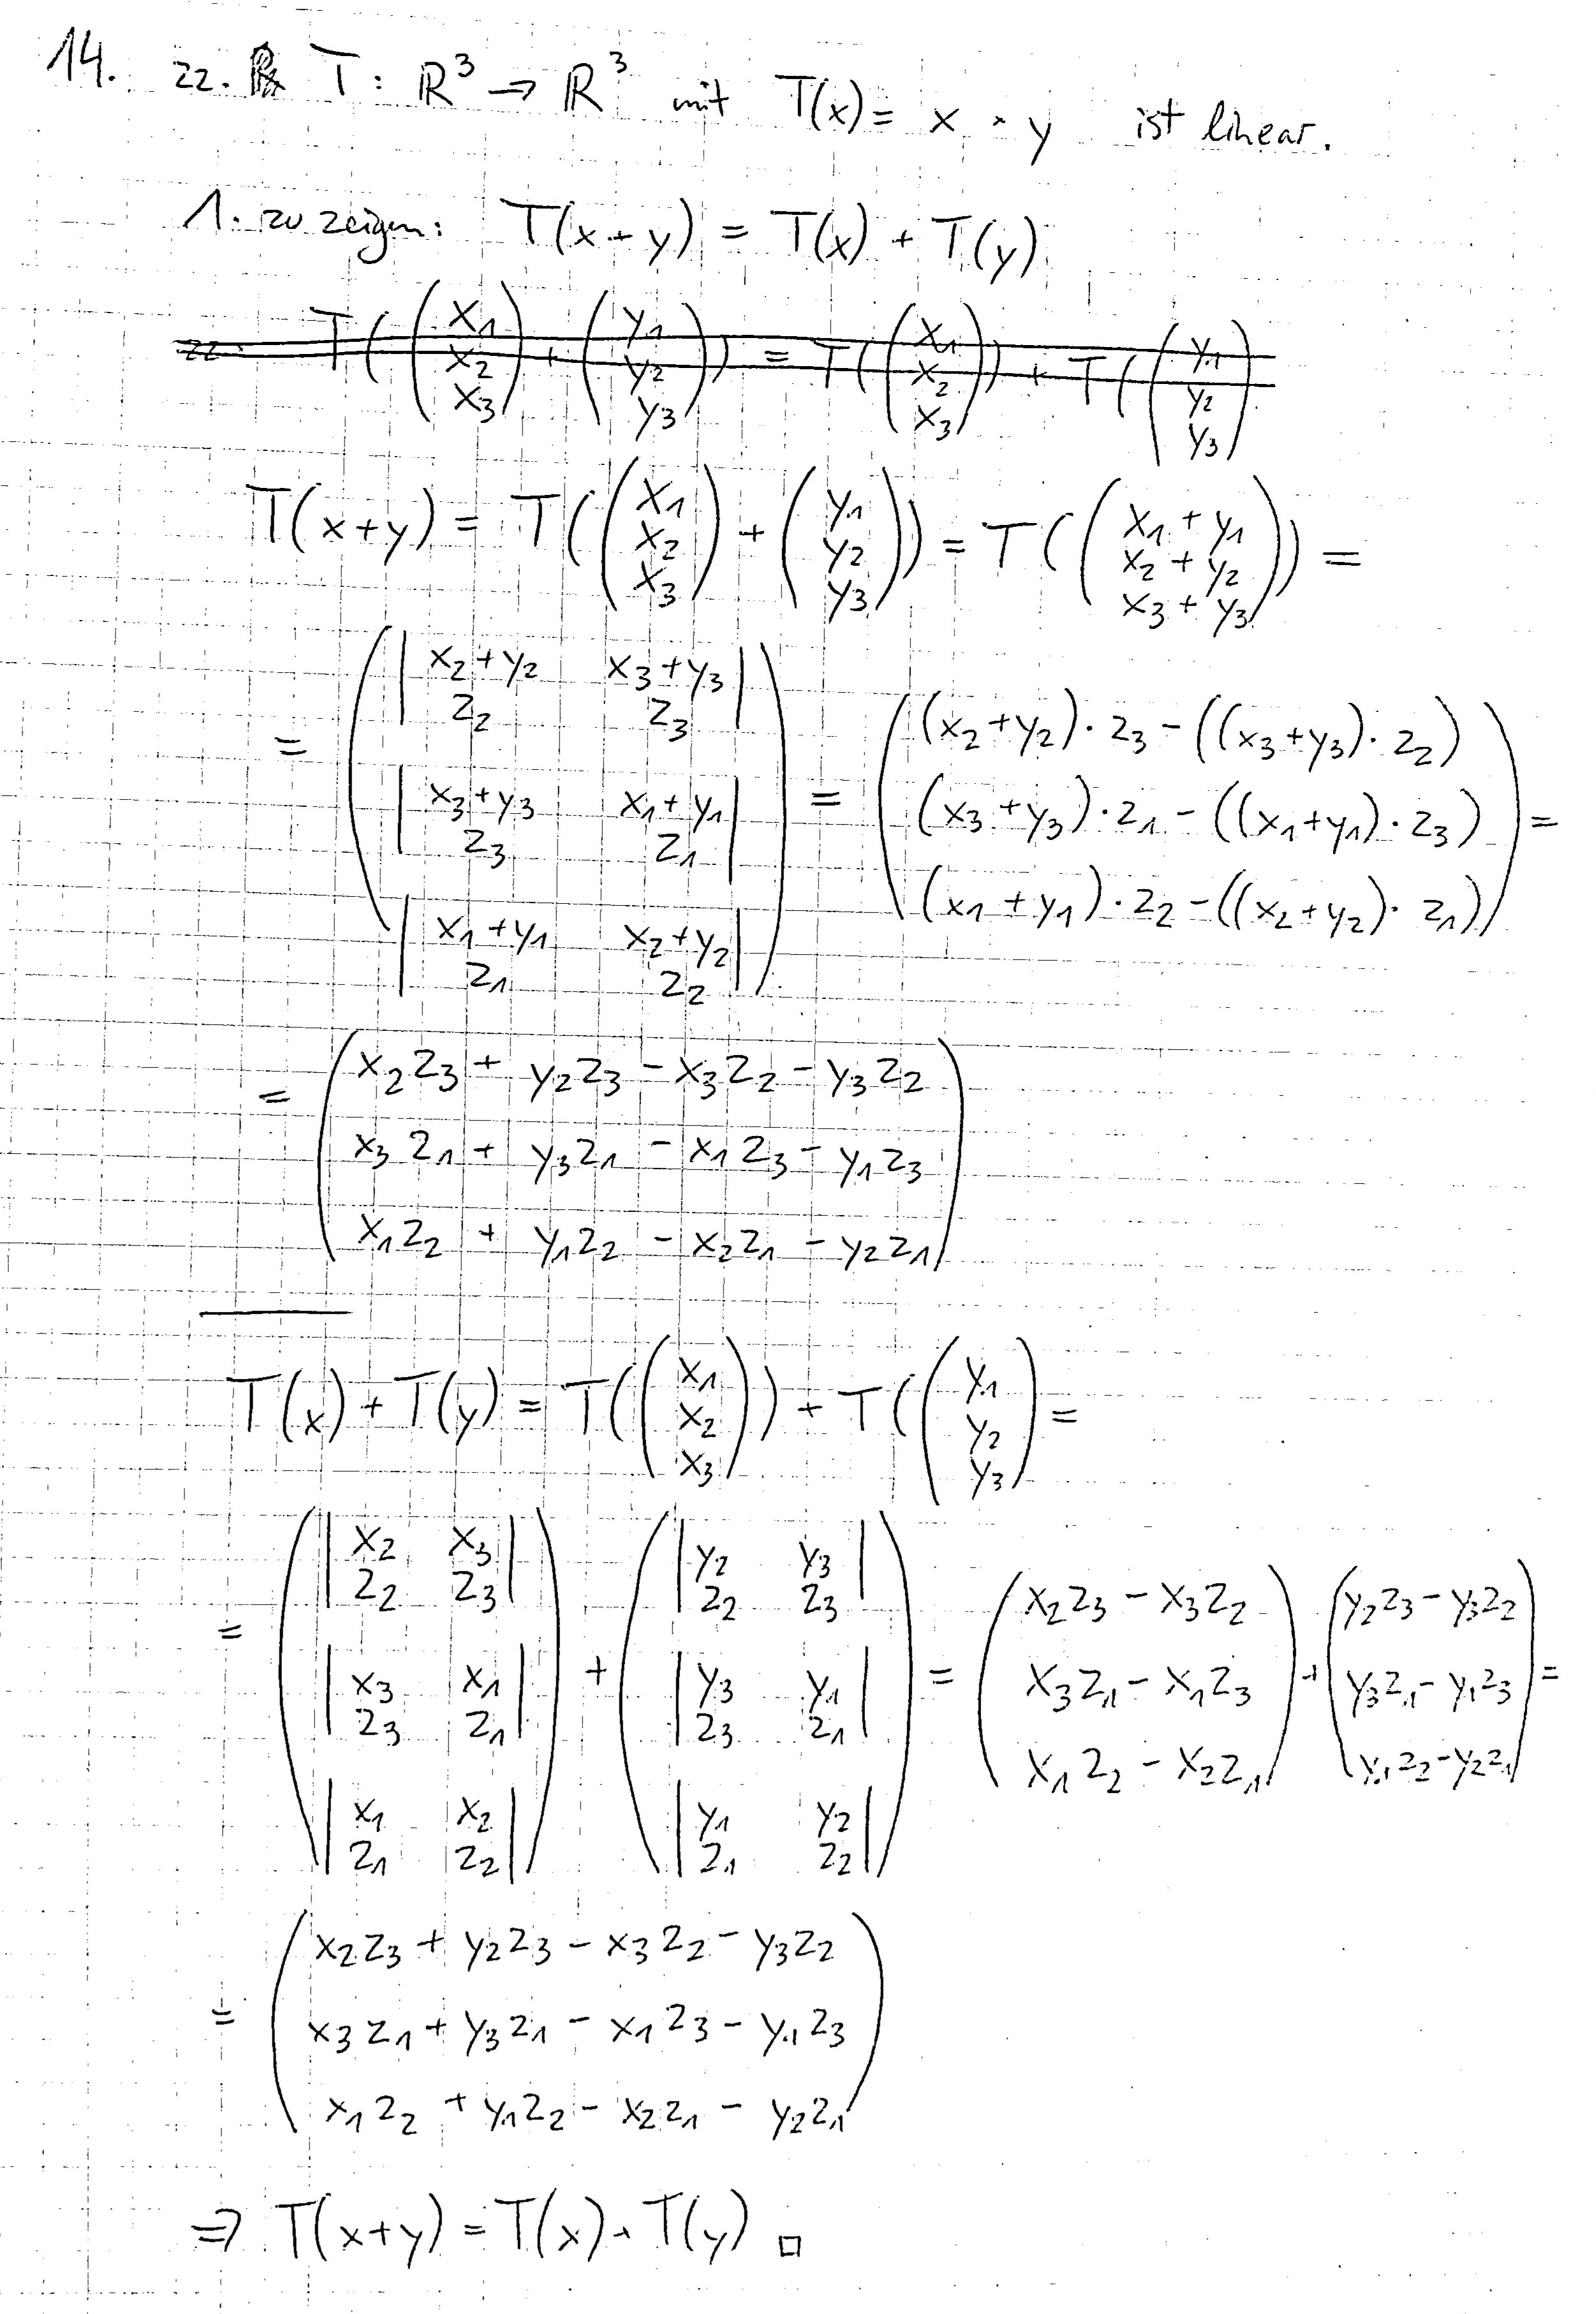 14. zz. T: ℝ³ → ℝ³ mit T(x) = x × y ist linear.
1. zu zeigen: T(x+y) = T(x) + T(y)
zz. T((x1 x2 x3) + (y1 y2 y3)) = T((x1 x2 x3)) + T((y1 y2 y3)
T(x+y) = T((x1 x2 x3) + (y1 y2 y3)) = T((x1+y1 x2+y2 x3+y3)) =
= (|x2+y2 x3+y3 z2 z3| |x3+y3 x1+y1 z3 z1| |x1+y1 x2+y2 z1 z2|) = ((x2+y2)·z3 − ((x3+y3)·z2) (x3+y3)·z1 − ((x1+y1)·z3) (x1+y1)·z2 − ((x2+y2)·z1)) =
= (x2z3 + y2z3 − x3z2 − y3z2
x3z1 + y3z1 − x1z3 − y1z3
x1z2 + y1z2 − x2z1 − y2z1)
T(x) + T(y) = T((x1 x2 x3)) + T((y1 y2 y3) =
= (|x2 x3 z2 z3| |x3 x1 z3 z1| |x1 x2 z1 z2|) + (|y2 y3 z2 z3| |y3 y1 z3 z1| |y1 y2 z1 z2|) = (x2z3 − x3z2 x3z1 − x1z3 x1z2 − x2z1) + (y2z3 − y3z2 y3z1 − y1z3 y1z2 − y2z1) =
= (x2z3 + y2z3 − x3z2 − y3z2
x3z1 + y3z1 − x1z3 − y1z3
x1z2 + y1z2 − x2z1 − y2z1)
⇒ T(x+y) = T(x) + T(y) □